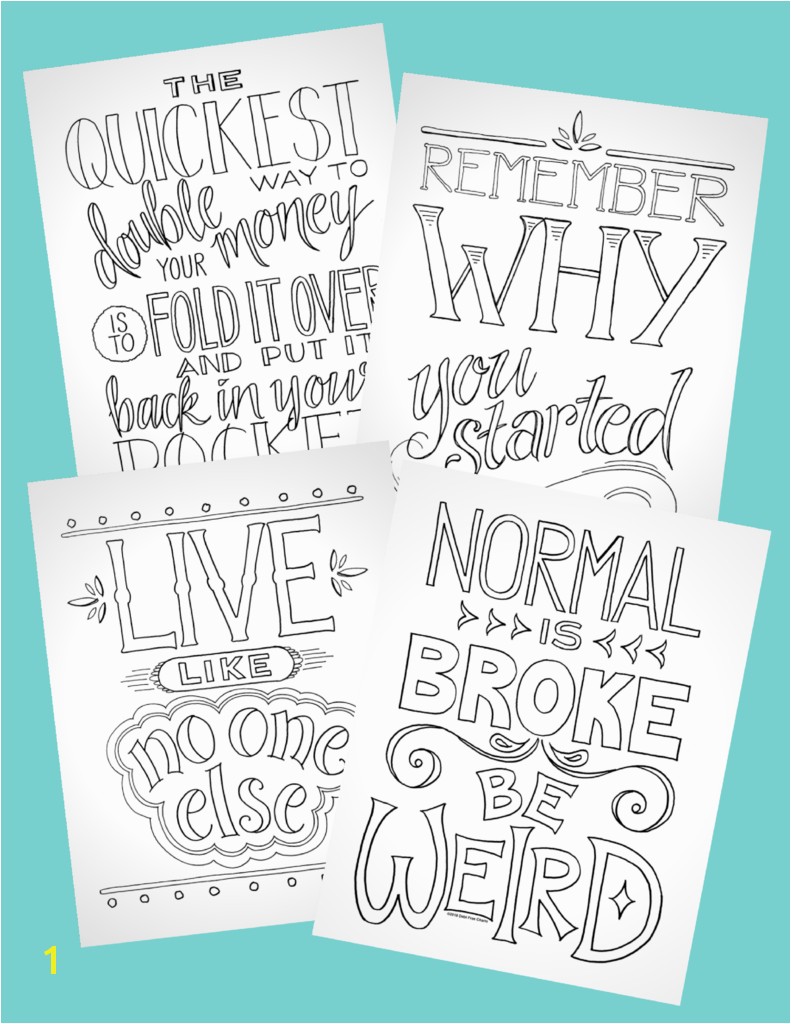 THE
QUICKEST
WAY TO
double
YOUR money
IS
TO
FOLD IT OVER
AND PUT IT
back in your
POCKET
REMEMBER
WHY
you
started
LIVE
LIKE
no one
else
NORMAL
IS
BROKE
BE
WEIRD
1